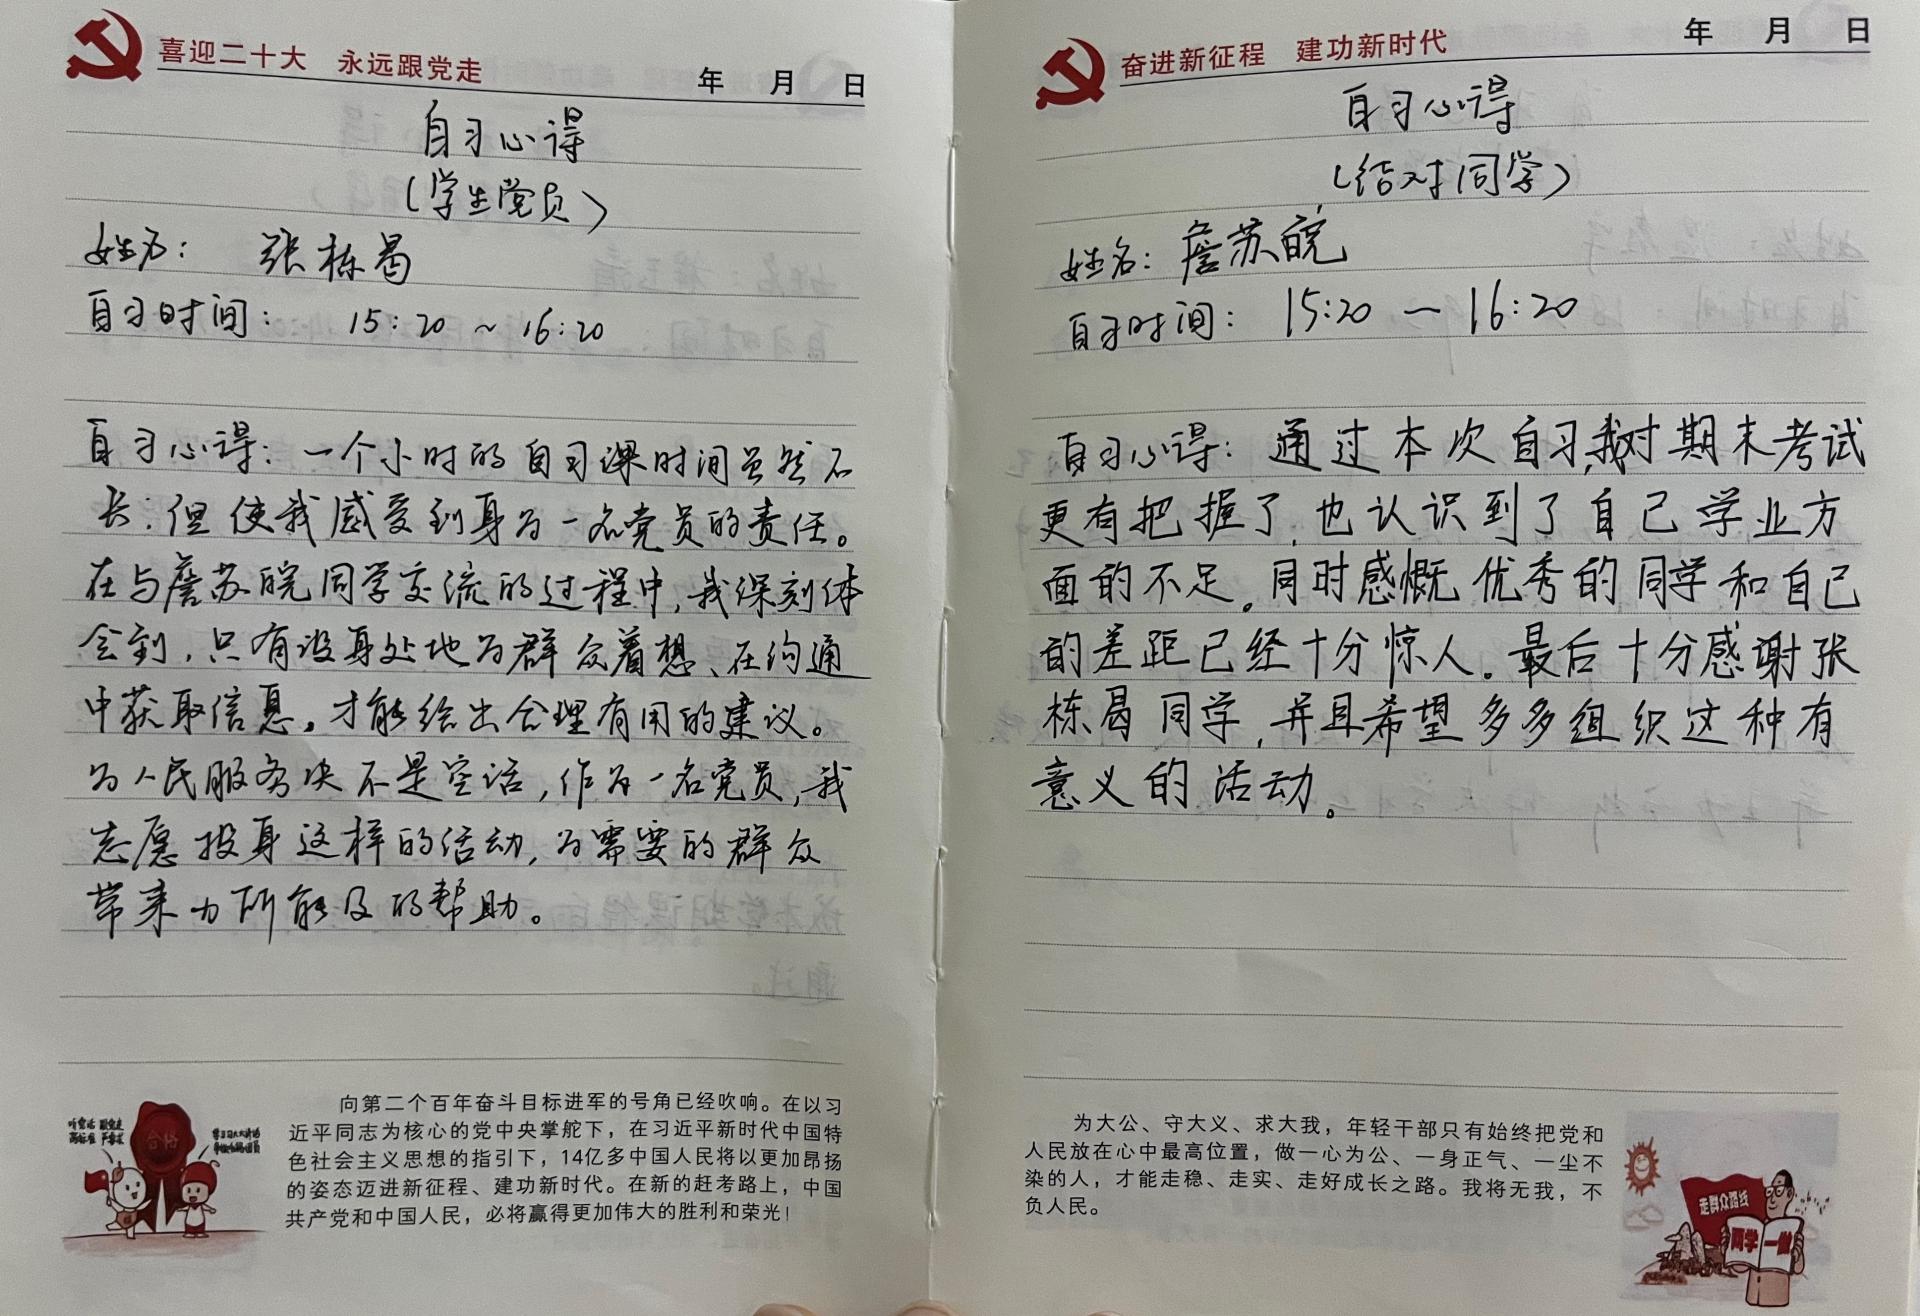 喜迎二十大 永远跟党走
年 月 日
自习心得
(学生党员)
姓名: 张栋曷
自习时间: 15:20 ~ 16:20
自习心得:一个小时的自习课时间虽然不
长;但使我感受到身为一名党员的责任。
在与詹苏皖同学交流的过程中,我深刻体
会到,只有设身处地为群众着想、在沟通
中获取信息,才能给出合理有用的建议。
为人民服务决不是空话,作为一名党员,我
志愿投身这样的活动,为需要的群众
带来力所能及的帮助。
合格
向第二个百年奋斗目标进军的号角已经吹响。在以习
近平同志为核心的党中央掌舵下,在习近平新时代中国特
色社会主义思想的指引下,14亿多中国人民将以更加昂扬
的姿态迈进新征程、建功新时代。在新的赶考路上,中国
共产党和中国人民,必将赢得更加伟大的胜利和荣光!
奋进新征程 建功新时代
年 月 日
自习心得
(结对同学)
姓名:詹苏皖
自习时间: 15:20 — 16:20
自习心得:通过本次自习,我对期末考试
更有把握了,也认识到了自己学业方
面的不足。同时感慨优秀的同学和自己
的差距已经十分惊人。最后十分感谢张
栋曷同学,并且希望多多组织这种有
意义的活动。
为大公、守大义、求大我,年轻干部只有始终把党和
人民放在心中最高位置,做一心为公、一身正气、一尘不
染的人,才能走稳、走实、走好成长之路。我将无我,不
负人民。
走群众路线
两学一做